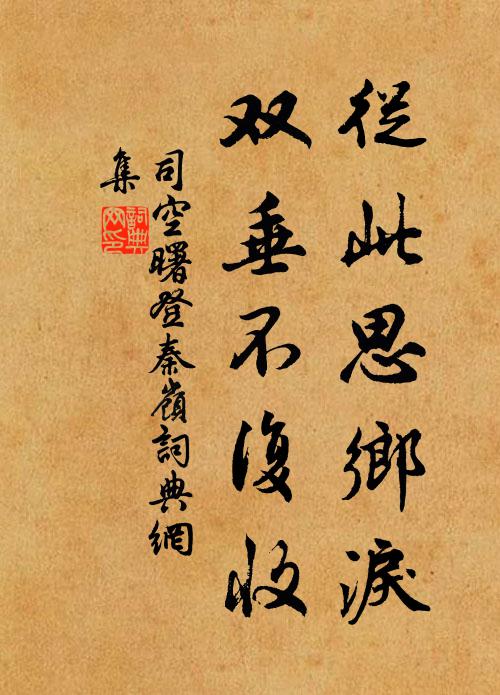 從此思鄉淚
双垂不復收
司空曙登秦嶺詞典網
集
詞典网印